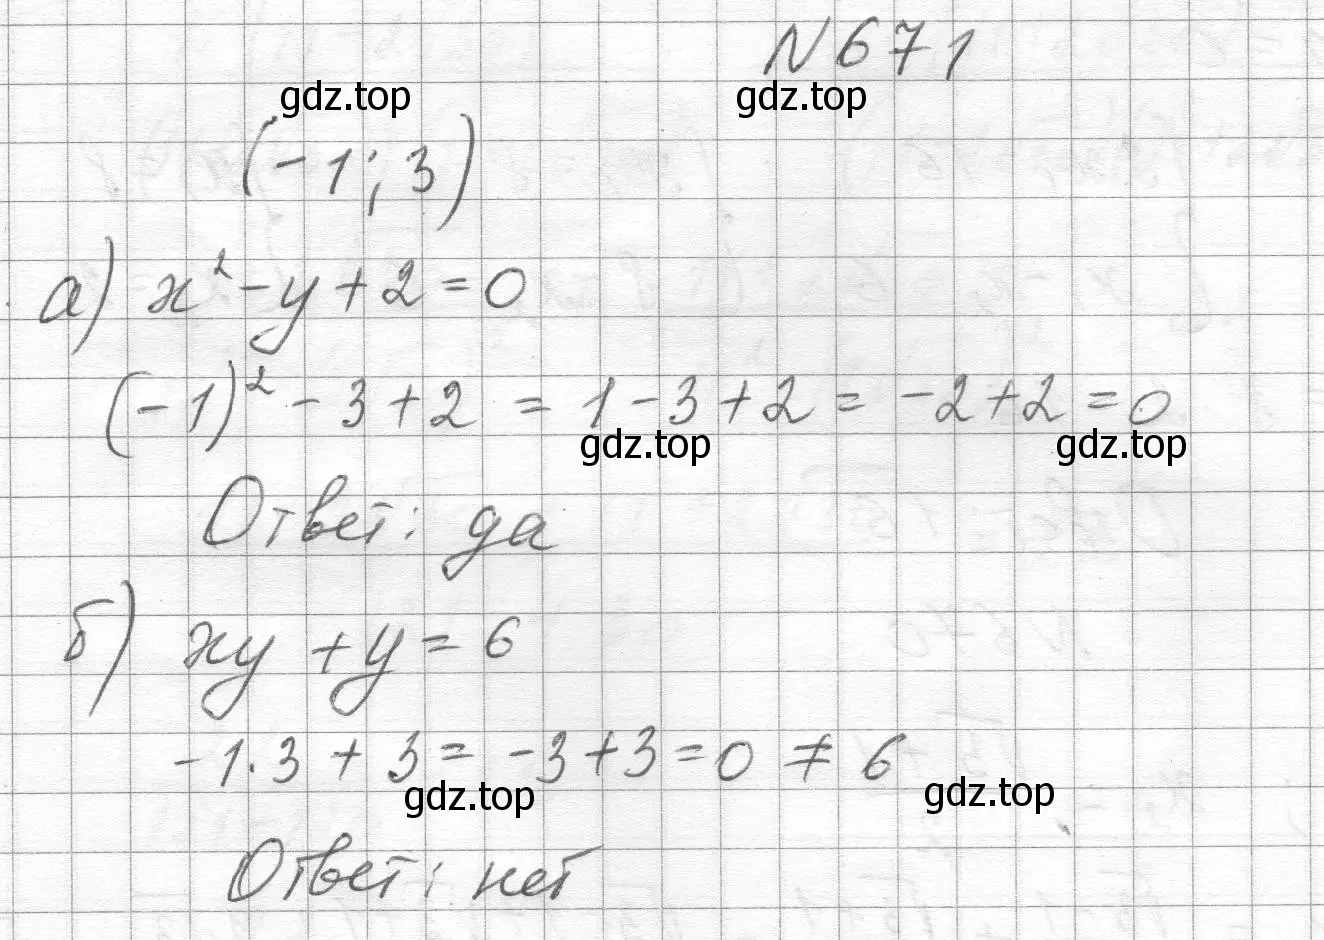 N 671
gdz.top gdz.top
(-1; 3)
а) x² - y + 2 = 0
(-1)² - 3 + 2 = 1 - 3 + 2 = -2 + 2 = 0
gdz.top gdz.top
Ответ: да
б) xy + y = 6
-1·3 + 3 = -3 + 3 = 0 ≠ 6
gdz.top gdz.top
Ответ: нет